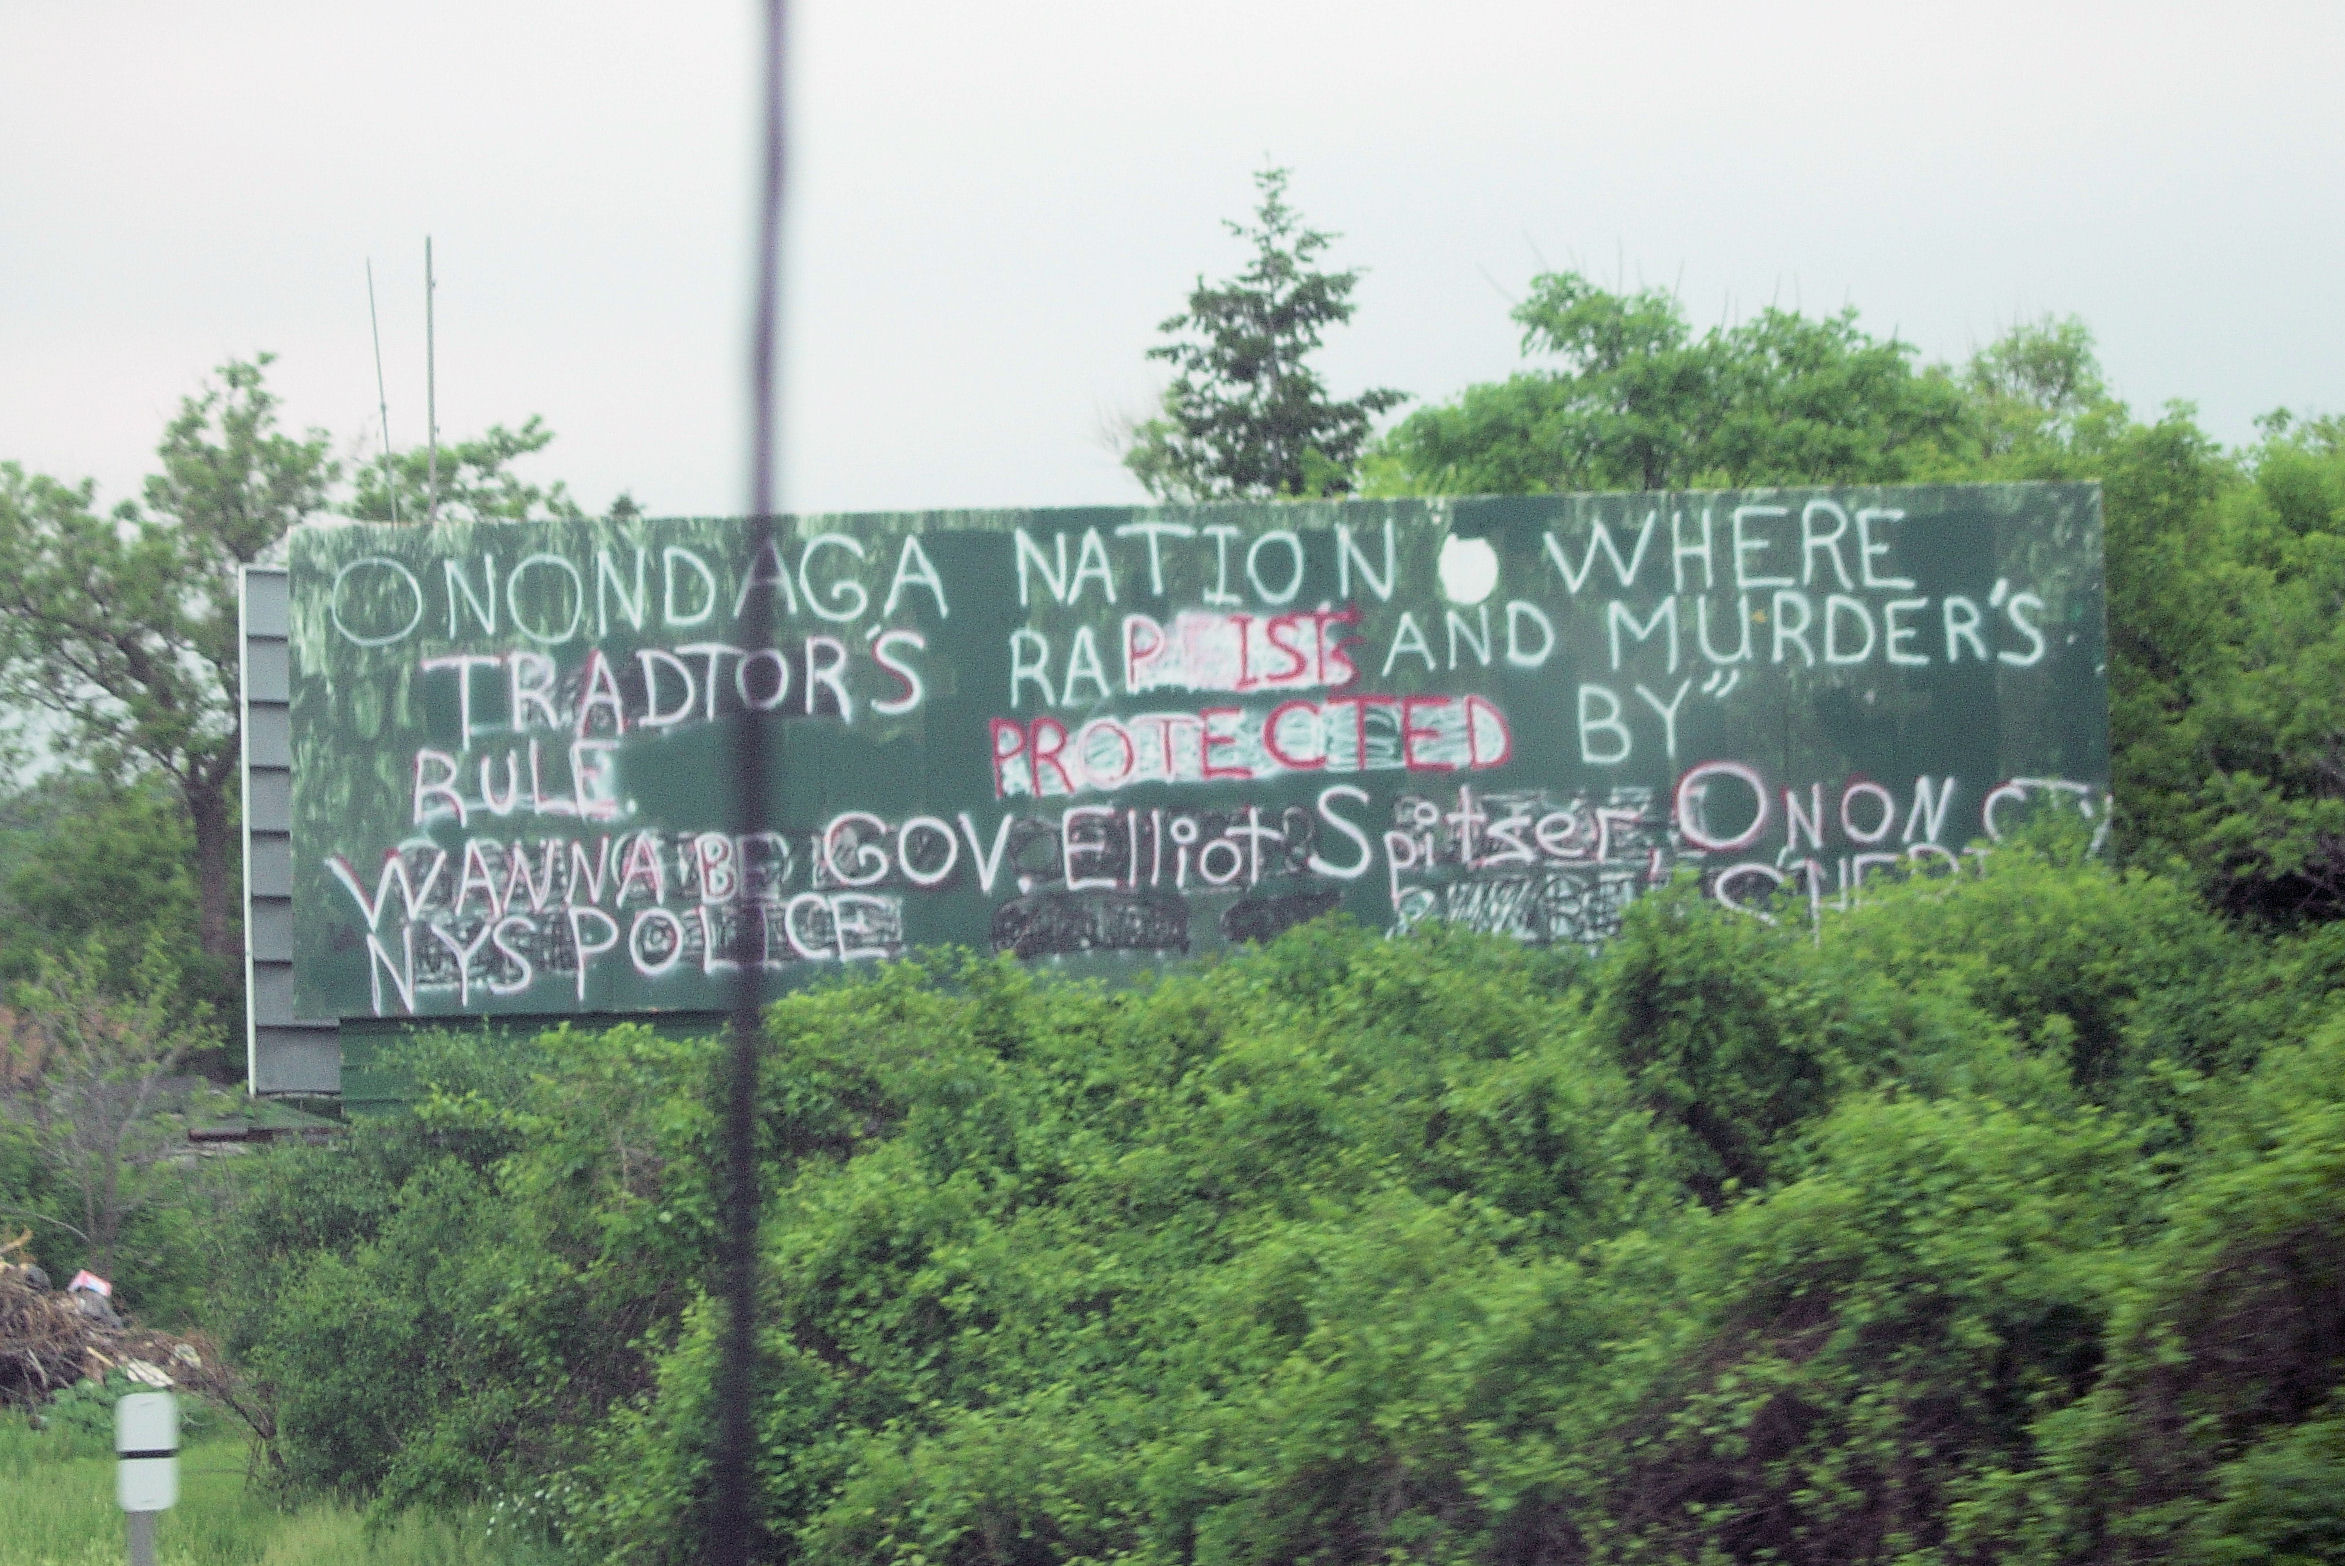 ONONDAGA NATION WHERE
TRADTOR'S RAPIST'S AND MURDER'S
RULE. PROTECTED BY"
WANNA BE GOV. Elliot Spitzer, ONON CTY
NYS POLICE